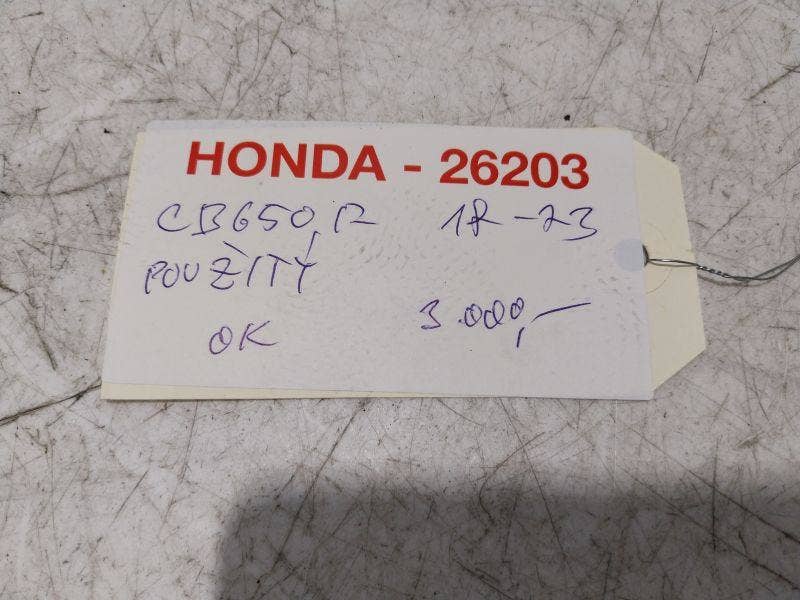 HONDA - 26203
CB650R 18-23
POUŽITÝ
OK 3.000,-